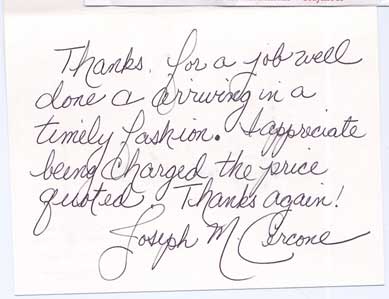 Thanks. for a job well
done a arriving in a
timely fashion. I appreciate
being charged the price
quoted. Thanks again!
Joseph M Circone